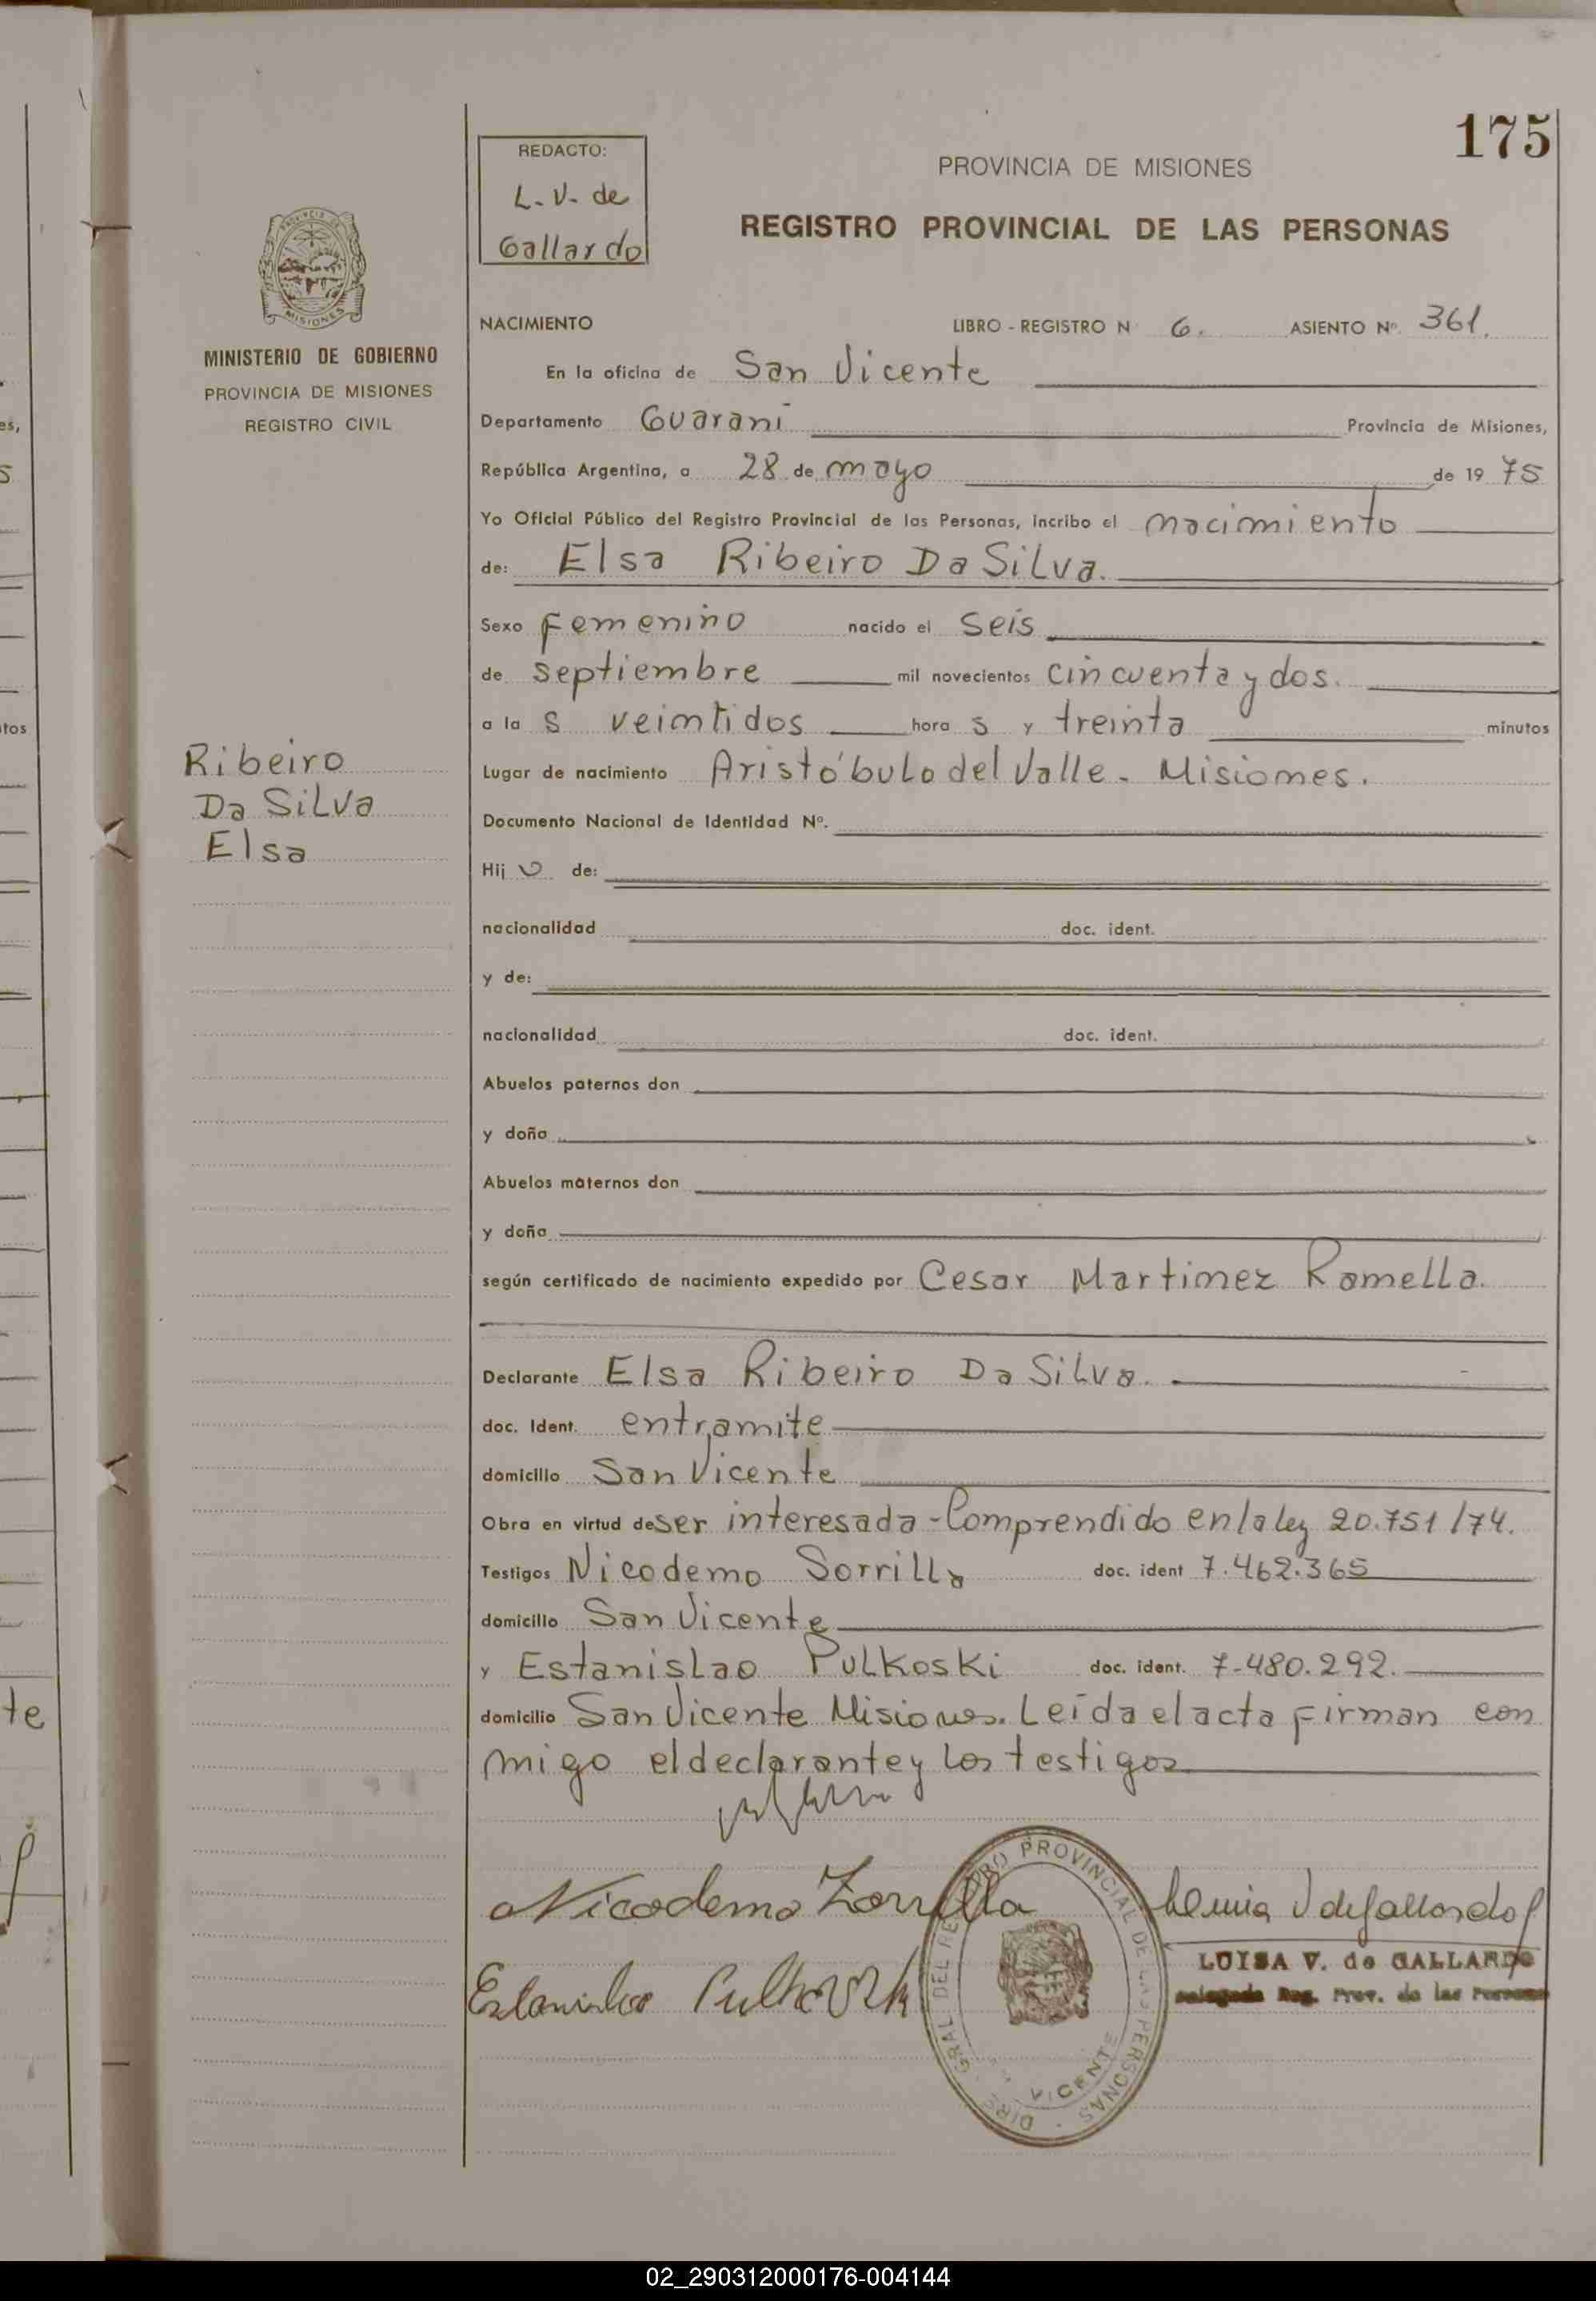 175
REDACTO:
L. V. de
Gallardo
PROVINCIA DE MISIONES
REGISTRO PROVINCIAL DE LAS PERSONAS
MISIONES
MINISTERIO DE GOBIERNO
PROVINCIA DE MISIONES
REGISTRO CIVIL
NACIMIENTO LIBRO - REGISTRO N 6. ASIENTO Nº. 361.
En la oficina de San Vicente
Departamento Guaraní Provincia de Misiones,
República Argentina, a 28 de mayo de 19 75
Yo Oficial Público del Registro Provincial de las Personas, incribo el nacimiento
de: Elsa Ribeiro Da Silva.
Sexo Femenino nacido el seis
de septiembre mil novecientos cincuenta y dos.
a la s veintidos hora s y treinta minutos
Ribeiro
Da Silva
Elsa
Lugar de nacimiento Aristóbulo del Valle - Misiones.
Documento Nacional de Identidad Nº.
Hij de:
nacionalidad doc. ident.
y de:
nacionalidad doc. ident.
Abuelos paternos don
y doña
Abuelos maternos don
y doña
según certificado de nacimiento expedido por Cesar Martinez Ramella.
Declarante Elsa Ribeiro Da Silva.
doc. Ident. entramite
domicilio San Vicente
Obra en virtud de ser interesada - Comprendido en la ley 20.751/74.
Testigos Nicodemo Sorrilla doc. ident 7.462.365
domicilio San Vicente
y Estanislao Pulkoski doc. ident. 7-480.292.
domicilio San Vicente Misiones. Leída el acta firman con
migo el declarante y los testigos
Nicodemo Zorrilla
Estanislao
LUISA V. de GALLARDO
Delegada Reg. Prov. de las Personas
PROVINCIAL DE LAS PERSONAS
VICENTE
02_290312000176-004144